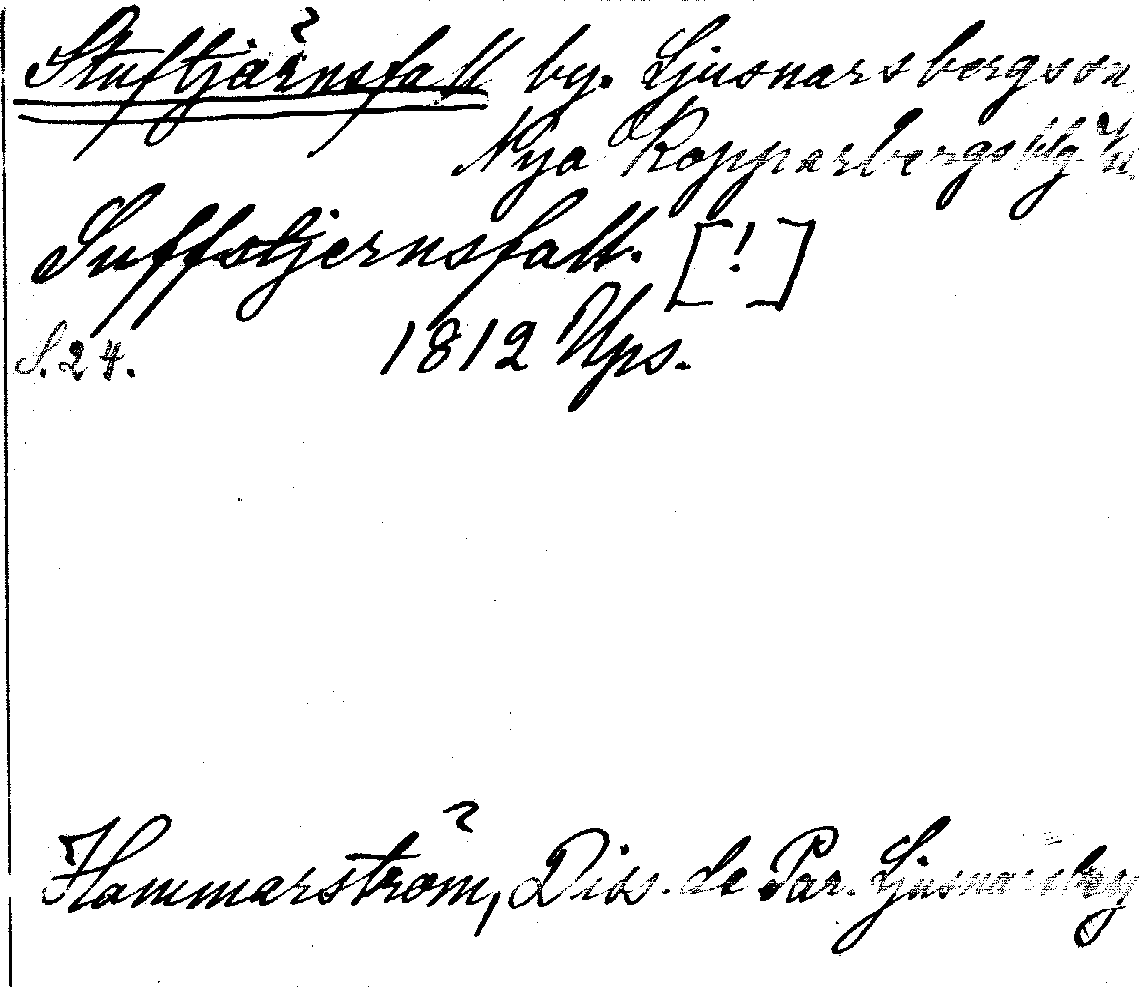 Stuftjärnsfall by. Ljusnarsbergs sn
Nya Kopparbergs blg
Suffstjernsfall. [!]
S. 24. 1812 Ups.
Hammarström, Diss. de Par. Ljusnarsberg